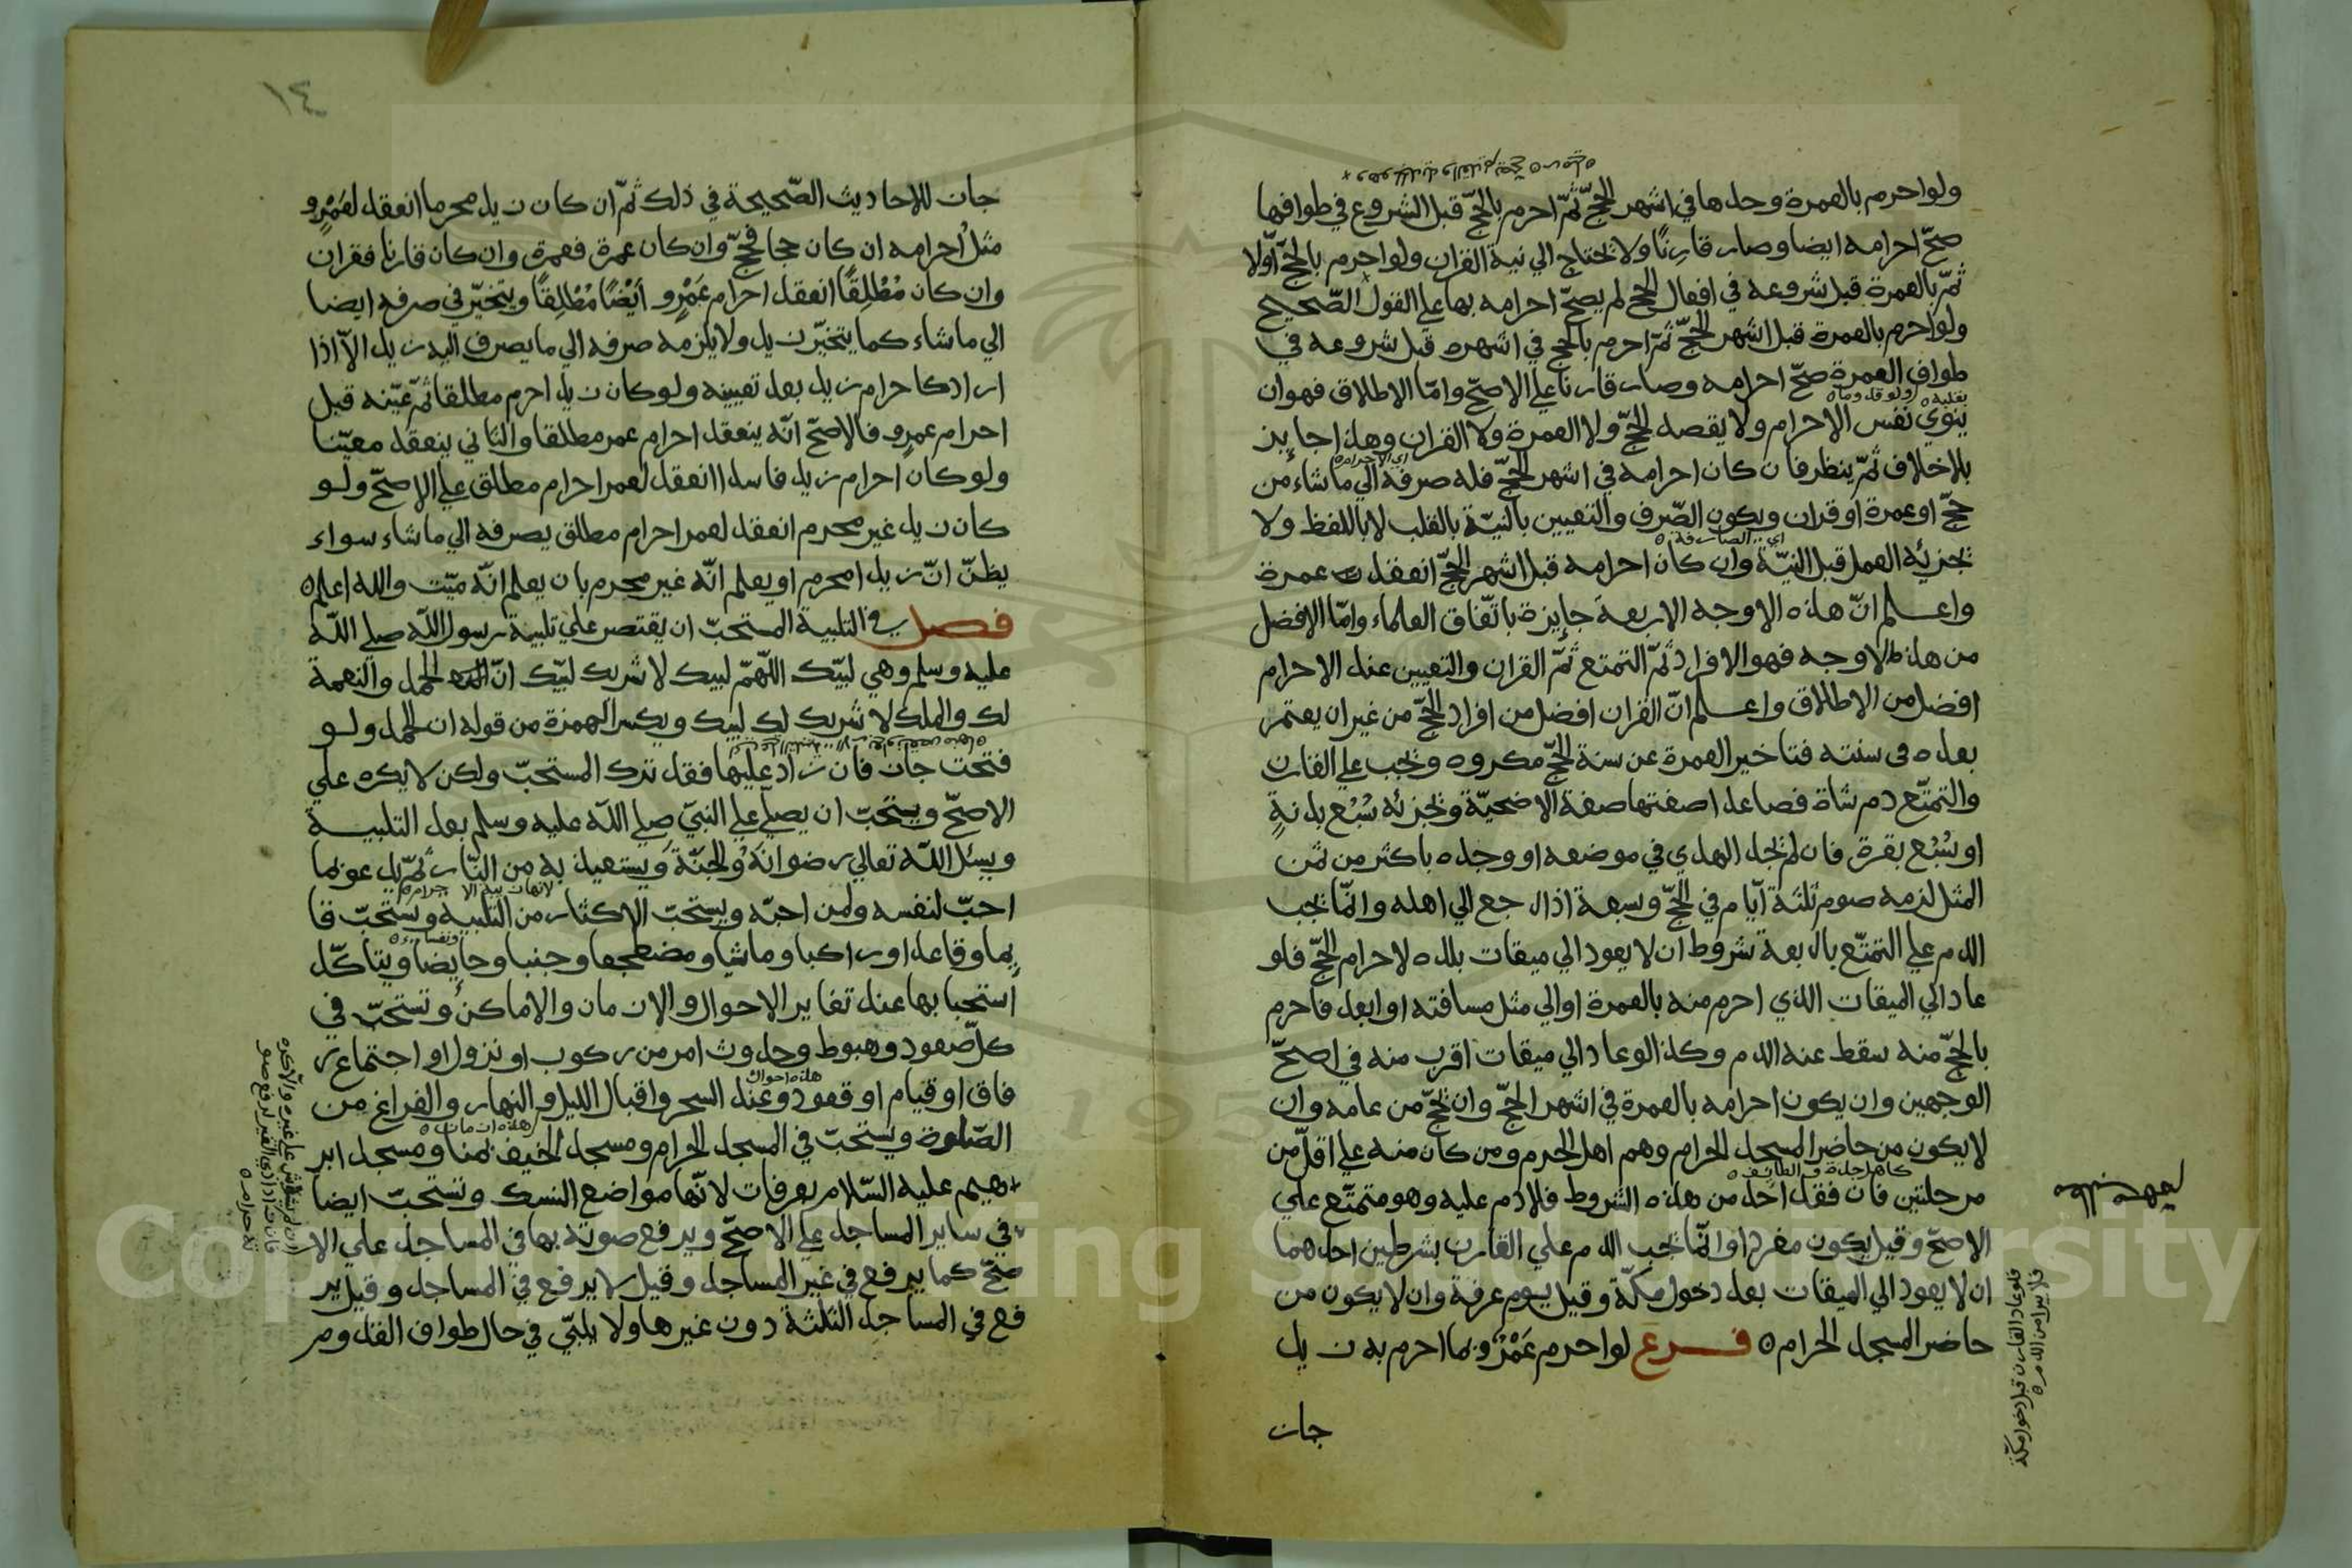 ولو احرم بالعمرة وحدها في اشهر الحجّ ثمّ احرم بالحجّ قبل الشروع في طوافها
صحّ احرامه ايضا وصار قارنًا ولا يحتاج الي نية القران ولو احرم بالحجّ اوّلا
ثمّ بالعمرة قبل شروعه في افعال الحج لم يصحّ احرامه بها علي القول الصّحيح
ولو احرم بالعمرة قبل اشهر الحجّ ثمّ احرم بالحج في اشهره قبل شروعه في
طواف العمرة صحّ احرامه وصار قارنا علي الاصحّ وامّا الاطلاق فهو ان
ينوي نفس الاحرام ولا يقصد الحجّ ولا العمرة ولا القران وهذا جايز
بلاخلاف ثمّ ينظر فان كان احرامه في اشهر الحجّ فله صرفه الي ماشاء من
حجّ او عمرة او قران ويكون الصّرف والتعيين بالنيّة بالقلب لا باللفظ ولا
تجزئه العمل قبل النيّة وان كان احرامه قبل اشهر الحجّ انعقد عمرة
واعلم انّ هذه الاوجه الاربعة جايزة باتّفاق العلماء وامّا الافضل
من هذه الاوجه فهو الافراد ثمّ التمتع ثمّ القران والتعيين عند الاحرام
افضل من الاطلاق واعلم انّ القران افضل من افراد الحجّ من غير ان يعتمر
بعده في سنته فتاخير العمرة عن سنة الحجّ مكروه وتجب علي القارن
والتمتّع دم شاة فصاعدا صفتها صفة الاضحيّة وتجزئه سُبُع بدنةٍ
او سُبُع بقرة فان لم يجد الهدي في موضعه او وجده باكثر من ثمن
المثل لزمه صوم ثلثة ايّام في الحجّ وسبعة اذا رجع الي اهله وانّما تجب
الدم علي التمتّع باربعة شروط ان لا يعود الي ميقات بلده لاحرام الحجّ فلو
عاد الي الميقات الذي احرم منه بالعمرة او الي مثل مسافته او ابعد فاحرم
بالحجّ منه سقط عنه الدم وكذا لو عاد الي ميقات اقرب منه في اصحّ
الوجهين وان يكون احرامه بالعمرة في اشهر الحجّ وان يحجّ من عامه وان
لا يكون من حاضر المسجد الحرام وهم اهل الحرم ومن كان منه علي اقلّ من
كاهل جدة والطائف
مرحلتين فان فقد احد من هذه الشروط فلا دم عليه وهو متمتّع علي
الاصحّ وقيل يكون مفردا وانّما تجب الدم علي القارن بشرطين احدهما
ان لا يعود الي الميقات بعد دخول مكّة وقيل يوم عرفة وان لا يكون من
حاضر المسجد الحرام ٥ فرع لو احرم عَمْرٌو بما احرم به زيد
جاز
فلو عاد القارن قبل دخول مكة
فلا يبرا من الدم
١٤
جاز للاحاديث الصّحيحة في ذلك ثمّ ان كان زيد محرما انعقد لعَمْرٍو
مثل احرامه ان كان حجا فحجّ وان كان عمرة فعمرة وان كان قارنا فقران
وان كان مُطْلِقًا انعقد احرام عَمْرٍو أَيْضًا مُطْلِقًا ويتخيّر في صرفه ايضا
الي ماشاء كما يتخيّر زيد ولا يلزمه صرفه الي ما يصرف اليه زيد الّا اذا
اراد كاحرام زيد بعد تعيينه ولو كان زيد احرم مطلقا ثمّ عيّنه قبل
احرام عمرو فالاصحّ انّه ينعقد احرام عمر مطلقا والثاني ينعقد معيّنا
ولو كان احرام زيد فاسدا انعقد لعمر احرام مطلق علي الاصحّ ولو
كان زيد غير محرم انعقد لعمر احرام مطلق يصرفه الي ماشاء سواء
يظنّ انّ زيدا محرم او يعلم انّه غير محرم بان يعلم انّه ميّت والله اعلم ٥
فصل في التلبية المستحبّ ان يقتصر علي تلبية رسول اللّه صلي اللّه
عليه وسلم وهي لبّيك اللّهمّ لبيك لا شريك لبّيك انّ الحمد والنعمة
لك والملك لا شريك لك لبيك ويكسر الهمزة من قوله ان الحمد ولو
فتحت جاز فان زاد عليها فقد ترك المستحبّ ولكن لا يكره علي
الاصحّ ويستحبّ ان يصلّي علي النبيّ صلي اللّه عليه وسلم بعد التلبية
ويسئل اللّه تعالي رضوانَه والجنّة ويستعيذ به من النّار ثمّ يدعو بما
احبّ لنفسه ولمن احبّه ويستحبّ الاكثار من التلبيه وتستحبّ قا
يما وقاعدا وراكبا وماشيا ومضطجعا وجنبا وحايضا ويتاكّد
استحبابها عند تغاير الاحوال والازمان والاماكن وتستحبّ في
كلّ صعود وهبوط وحدوث امر من ركوب او نزول او اجتماع ر
هذه احوال
فاق او قيام او قعود وعند السحر واقبال الليل والنهار والفراغ من
هذه ازمان
الصّلوة ويستحبّ في المسجد الحرام ومسجد الخيف بمنا ومسجد ابر
هيم عليه السّلام بعرفات لانّها مواضع النسك وتستحبّ ايضا
في ساير المساجد علي الاصحّ ويرفع صوته بها في المساجد علي الا
صحّ كما يرفع في غير المساجد وقيل لا يرفع في المساجد وقيل ير
فع في المساجد الثلثة دون غيرها ولا يلبّي في حال طواف القدوم